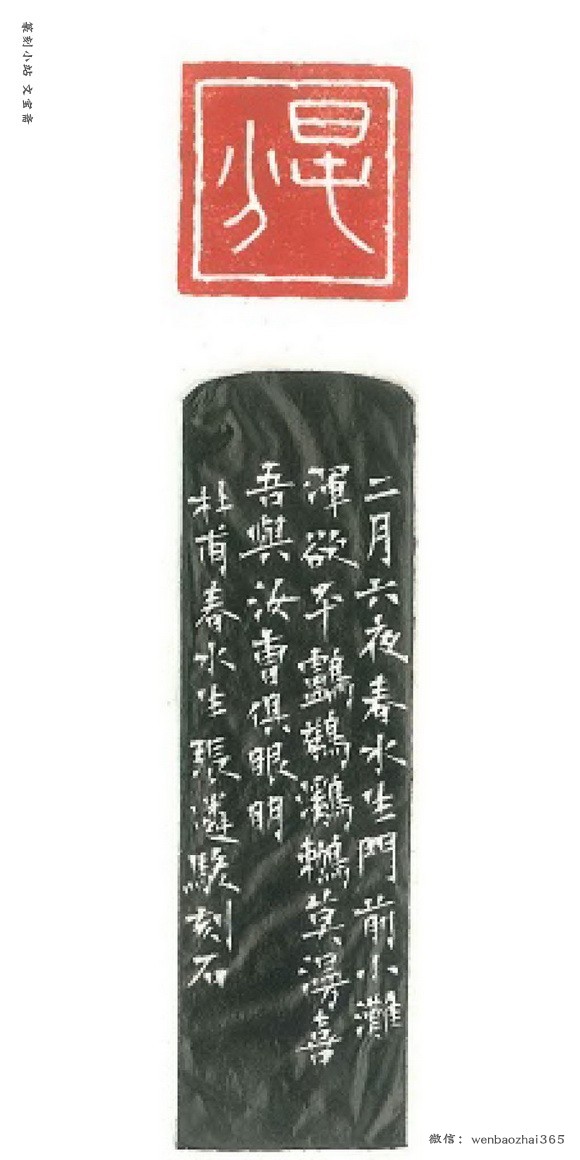 篆刻小站 文宝斋
二月六夜春水生門前小灘
渾欲平鸕鶿鸂鶒莫漫喜
吾與汝曹俱眼明
杜甫春水生 張遴駿刻石
微信：wenbaozhai365